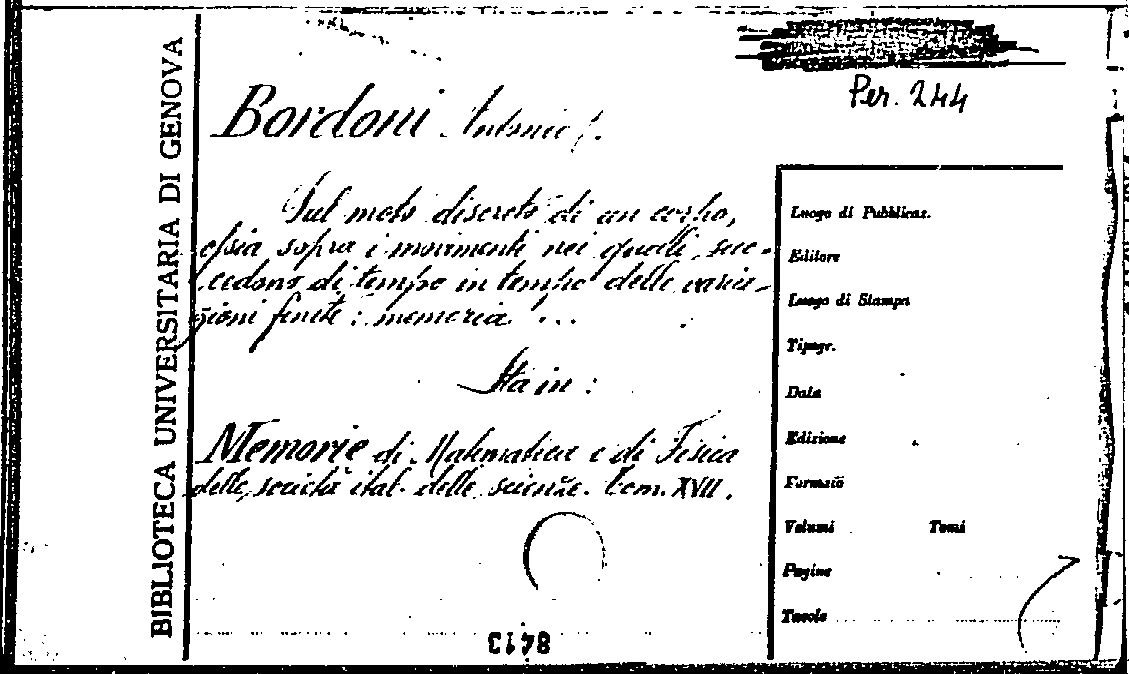 BIBLIOTECA UNIVERSITARIA DI GENOVA
Per. 244
Bordoni Antonio
Sul moto discreto di un corpo,
ossia sopra i movimenti nei quali suc-
cedono di tempo in tempo delle varia-
zioni finite: memoria ...
Sta in:
Memorie di Matematica e di Fisica
delle società ital. delle scienze. Tom. XVII.
Luogo di Pubblicaz.
Editore
Luogo di Stampa
Tipogr.
Data
Edizione
Formato
Volumi Tomi
Pagine
Tavole
8413